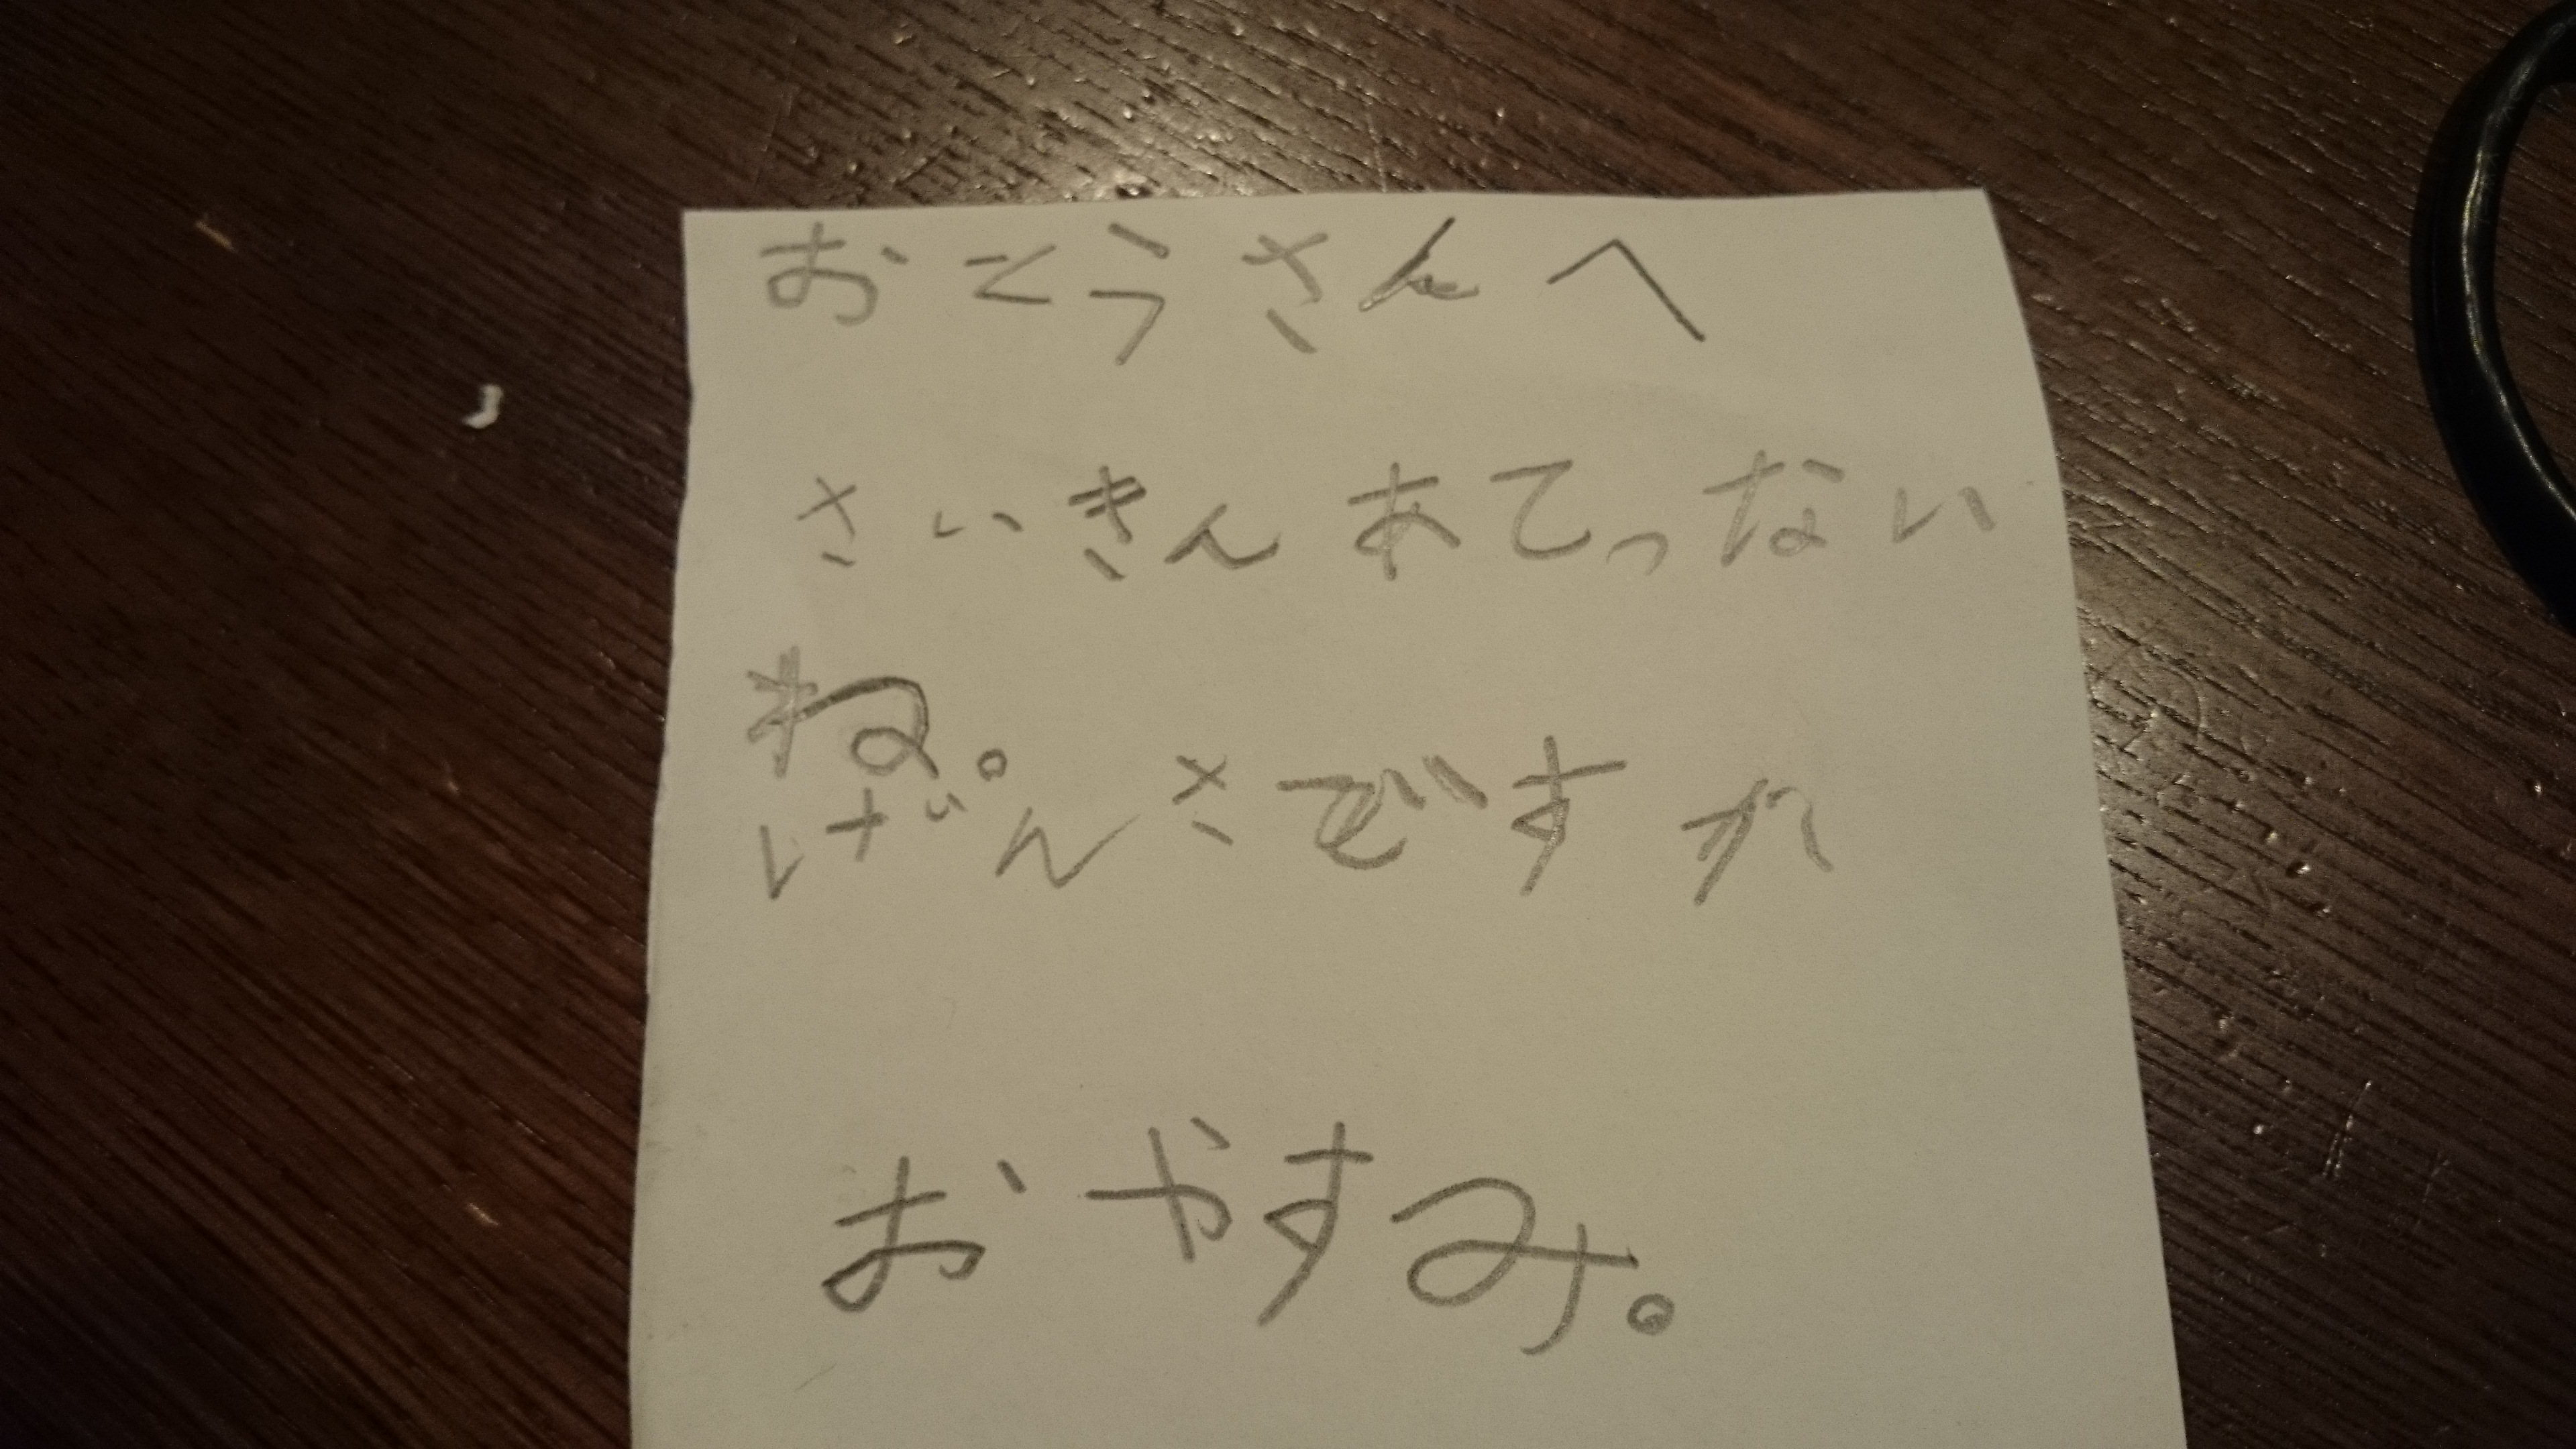 おとうさんへ
さいきんあてっない
ね。
げんさですか
おやすみ。